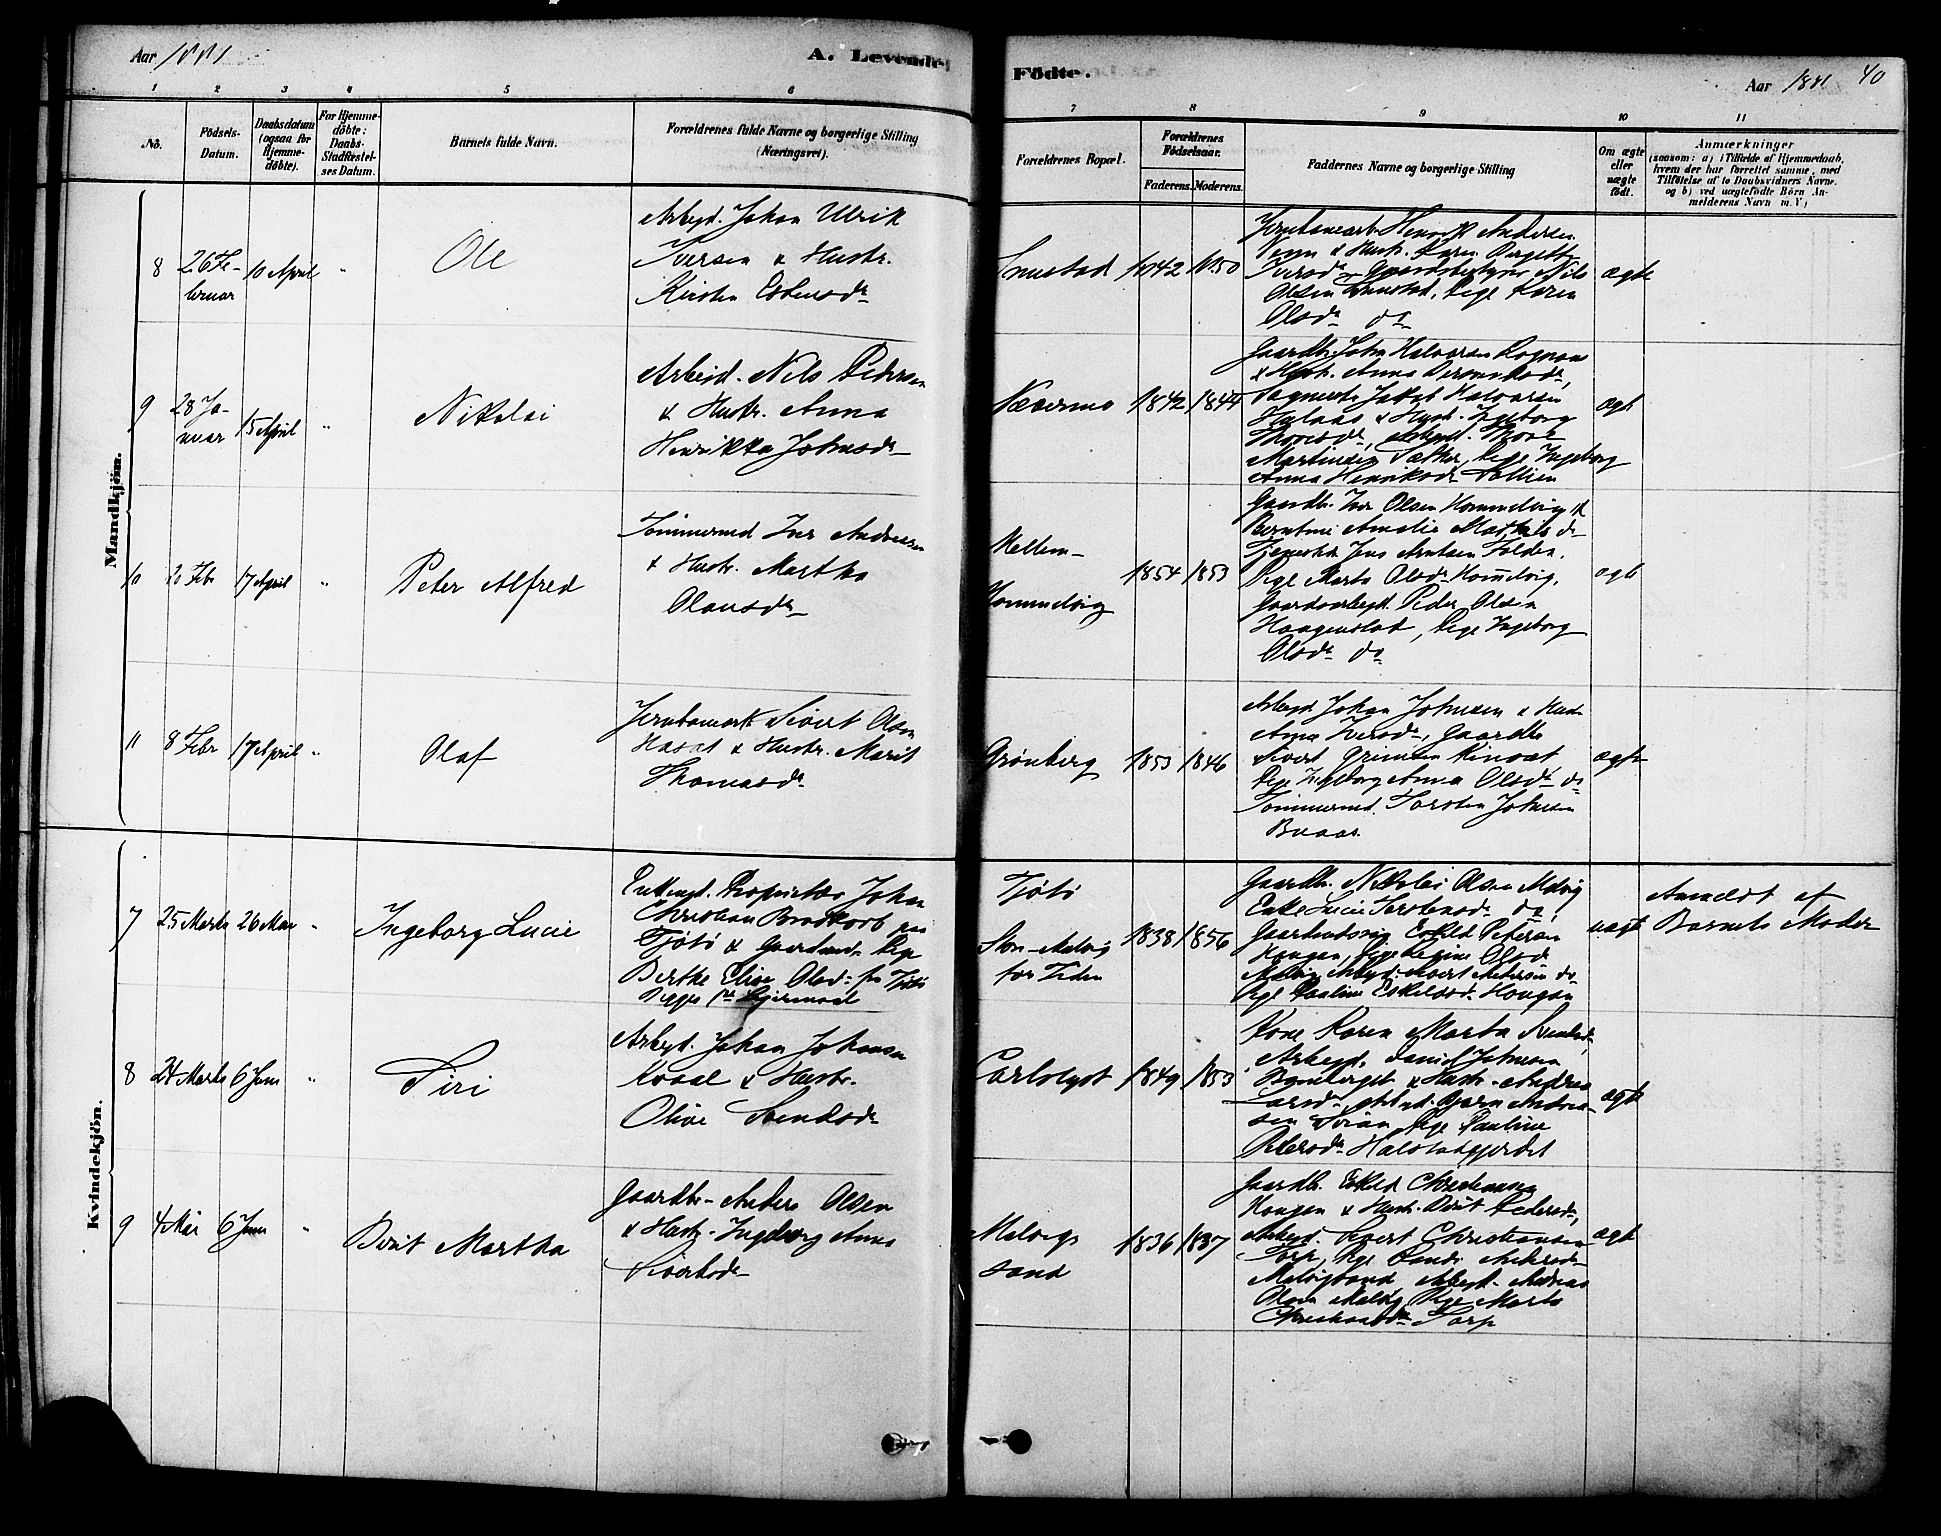 Aar 1881
A. Levende
Födte.
Aar 1881
40
1 2 3 4 5 6
7 8 9 10 11
No.
Födsels-
Datum.
Daabsdatum
(ogsaa for
Hjemme-
döbte).
For Hjemme-
döbte:
Daabs-
Stadfæstel-
ses Datum.
Barnets fulde Navn.
Forældrenes fulde Navne og borgerlige Stilling
(Næringsvei).
Forældrenes Bopæl.
Forældrenes
Födselsaar.
Faderens. Moderens.
Faddernes Navne og borgerlige Stilling
Om ægte
eller
uægte
født.
Anmærkninger
(saasom: a) i Tilfælde af Hjemmedaab,
hvem der har forrettet samme, med
Tilföielse af to Daabsvidners Navne,
og b) ved uægtefødte Börn An-
melderens Navn m. V.)
Mandkjön.
8
26 Fe-
bruar
10 April
"
Ole
Arbejd. Johan Ulrik
Iversen & Hustr.
Kirsten Esbensdr
1842 1850
Jernbanearb. Henrik Andersen
& Hustr. Karen
Iversdr Gaardsbestyrer Nils
Olsen Pige Karen
Olsdr do
ægte
9
28 Ja-
nuar
15 April
"
Nikolai
Arbejd. Nils Pedersen
& Hustr. Anna
Henrikka Johnsdr
1842 1844
Gaardbr. John Halvorsen
& Hustr. Anna
Jakob Halvorsen
& Hustr. Ingeborg
Arbejd.
Martinsen Sæther, Pige Ingeborg
Anna Henriksdr
ægt
10
20 Febr
17 April
"
Peter Alfred
Tömmermd Iver Andreasen
& Hustr. Martha
Olausdr
Mellem-
Hommelvig
1854 1853
Gaardbr. Iver Olsen Hommelvig &
Amalie
Jens Arntsen Folden,
Pige Marta Olsdr Hommelvig,
Gaardarbejd. Peder Olsen
Haugenstad, Pige Ingeborg
Olsdr do
ægt
11
8 Febr
17 April
"
Olaf
Jernbanearb. Sivert Olsen
& Hustr. Marit
Thomasdr
Grönberg
1853 1846
Arbejd Johan Johnsen & Hustr
Anna Iversdr, Gaardbr
Sivert Grimsen
Pige Ingeborg Anna Olsdr do
Tömmermd. Torsten Johnsen
Kvindekjön.
7
25 Marts
26 Mai
"
Ingeborg Lucie
Proprietær Johan
Christian Brodkorb paa
Tjötö & Pige
Berthe Elise Olsdr fra Tjötö
Tjötö
Melvig
for Tiden
1838 1856
Gaardbr. Nikolai Olsen Melvig
Enke Lucie Torstensdr do,
Eskild Petersen
Haugan, Pige Regine Olsdr
Melvig Arbejd. Sivert Andersen do
Pige Pauline Eskildsdr Haugan
uægt
Anmeldt af
Barnets Moder
8
24 Marts
6 Juni
"
Siri
Arbejd. Johan Johansen
Kvaal & Hustr.
Olive Svendsdr
Carlslyst
1849 1853
Kone Karen Marta
Arbejd. Daniel Johnsen
& Hustr. Andrea
Larsdr, Arbejd. Bjørn Andrea-
sen Pige Pauline
Petersdr Halstadgjerdet
ægte
9
4 Mai
6 Juni
"
Berit Martha
Gaardbr. Anders Olsen
& Hustr. Ingeborg Anna
Sivertsdr
Melvigs
sand
1836 1837
Gaardbr. Eskild Christiansen
Haugan & Hustr. Berit Pedersdr,
Arbejd. Sivert Christiansen
Torp, Pige Randi Andersdr
Melvigsand, Arbejd. Andreas
Olsen Melvig Pige Marta
Torp
ægt